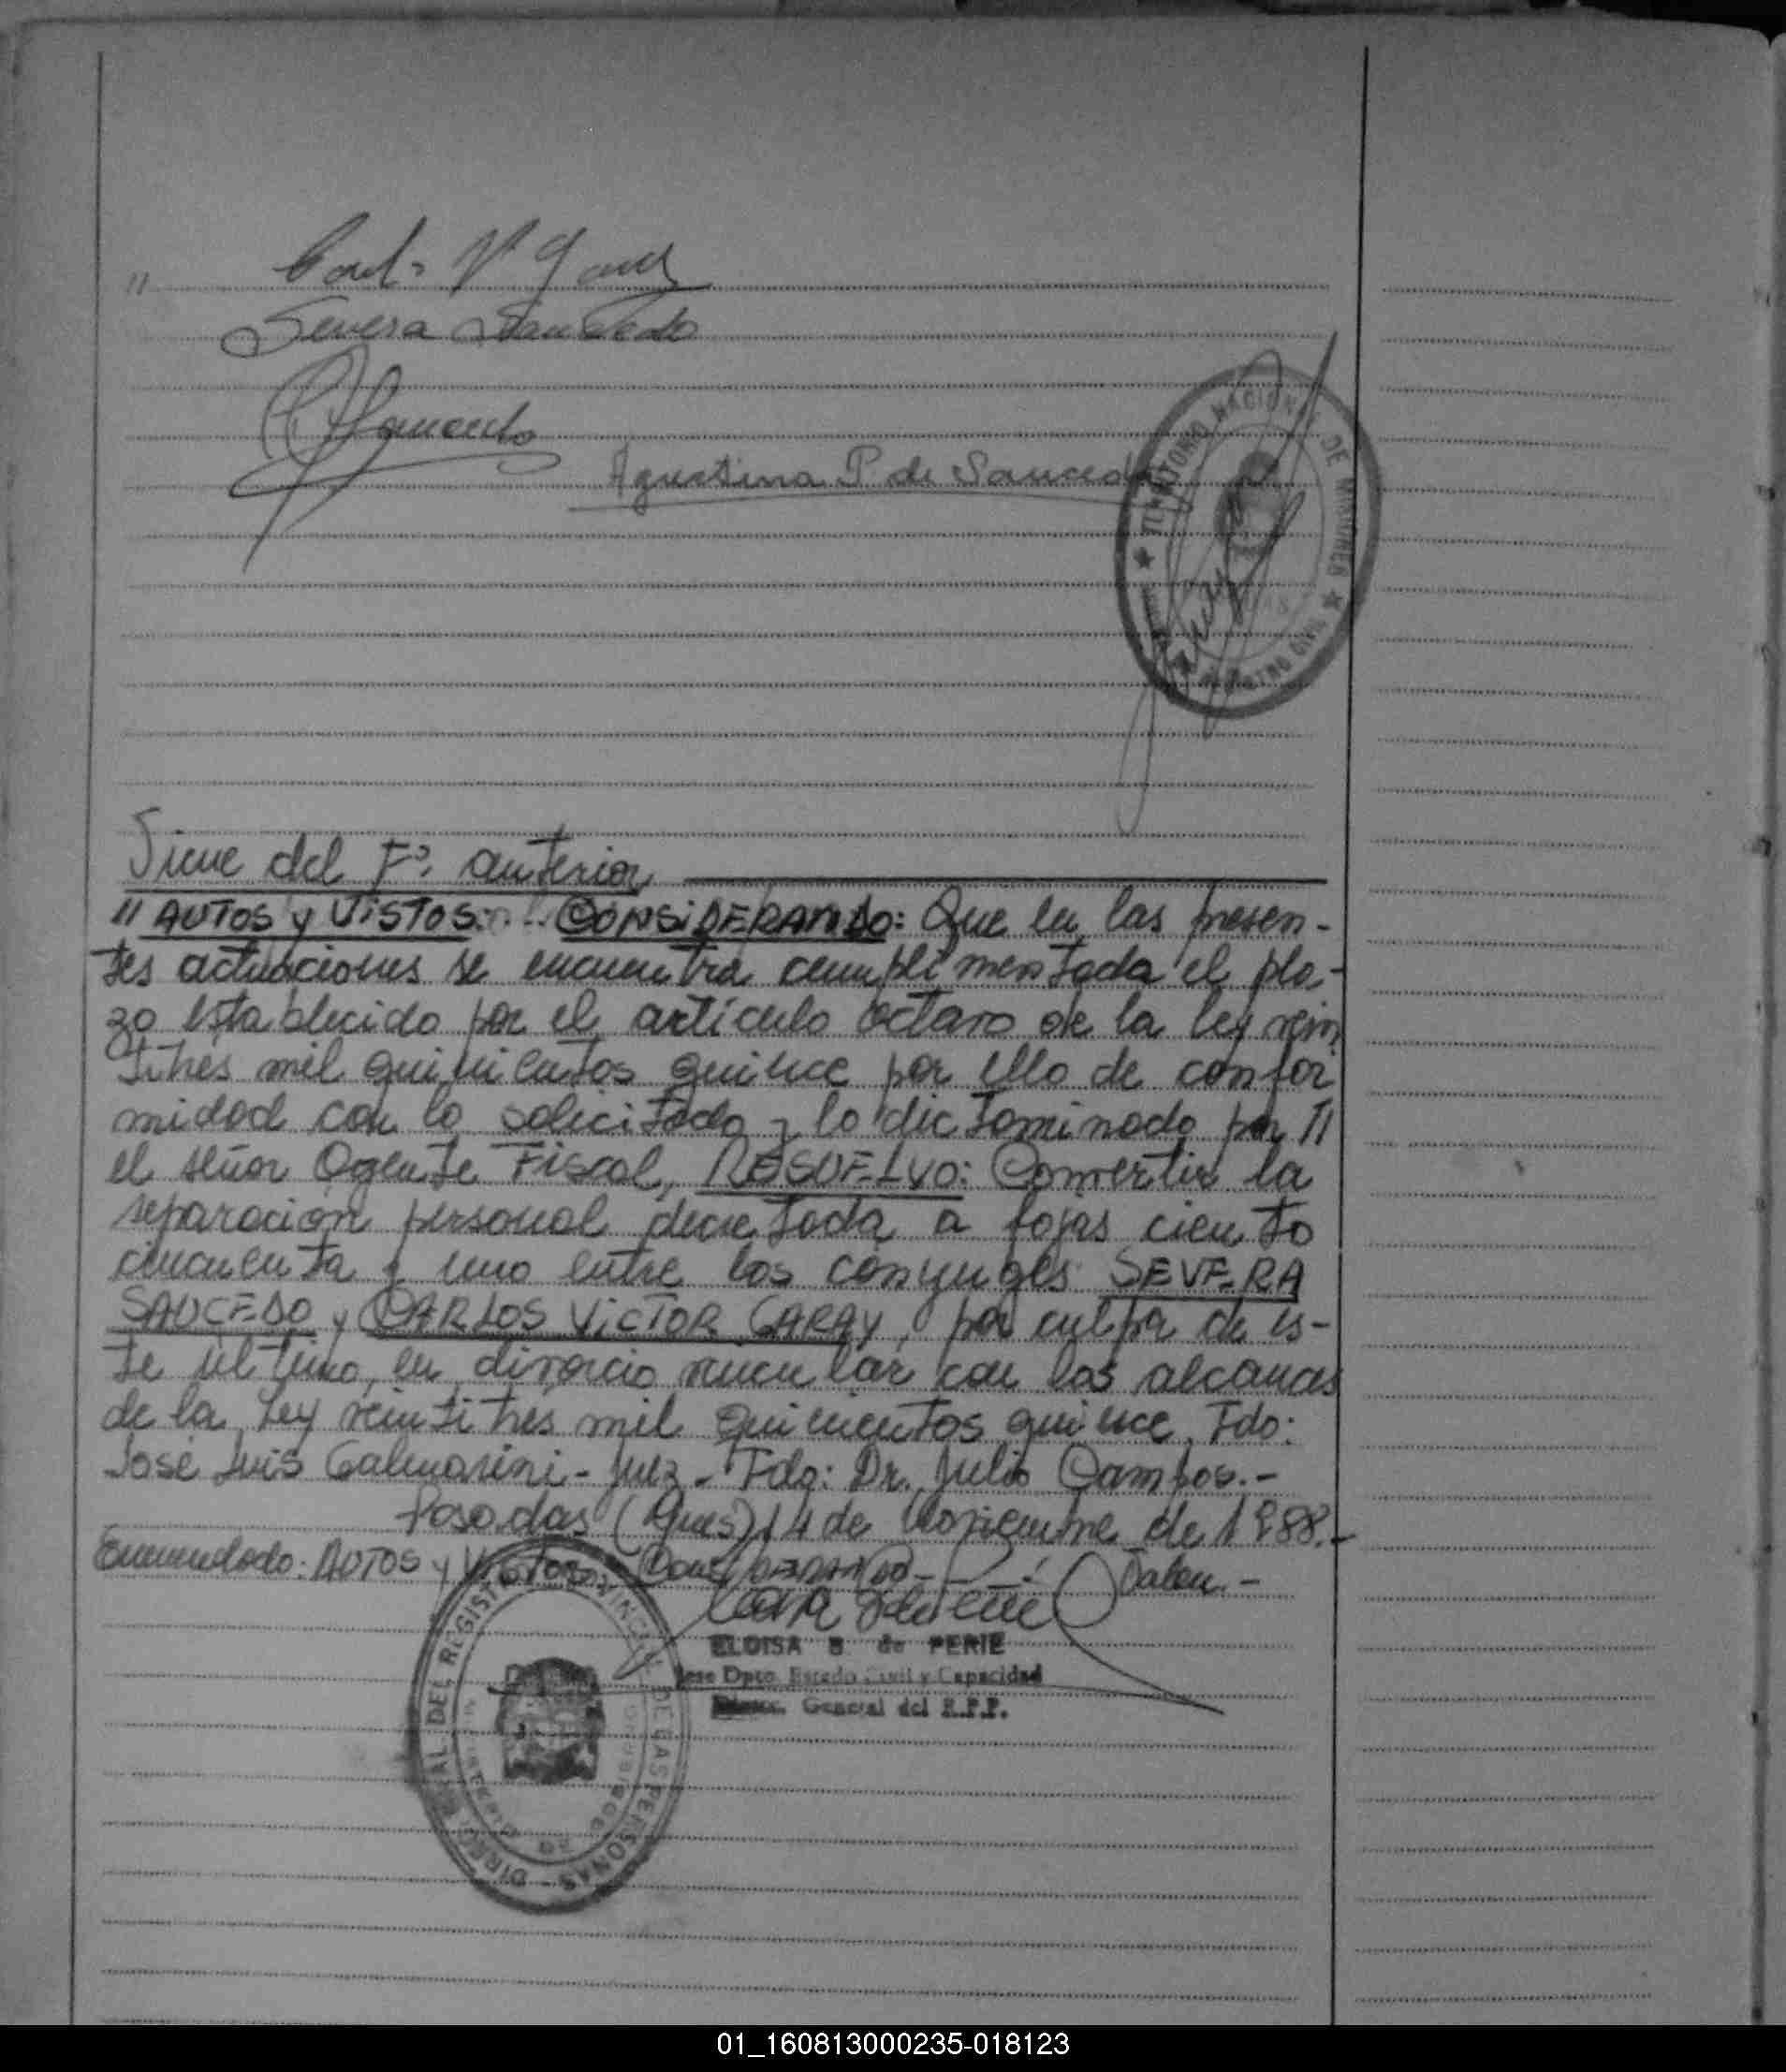 "
Severa Saucedo
Agustina P. de Saucedo
TERRITORIO NACIONAL DE MISIONES
REGISTRO CIVIL
Viene del Fº. anterior
" AUTOS y VISTOS: .. CONSIDERANDO: Que en las presen-
tes actuaciones se encuentra cumplimentada el pla-
zo establecido por el artículo octavo de la ley vein
titres mil quinientos quince por ello de confor
midad con lo solicitado y lo dictaminado por //
el señor Agente Fiscal, RESUELVO: Convertir la
separación personal decretada a fojas ciento
cincuenta y uno entre los conyuges SEVERA
SAUCEDO y CARLOS VICTOR GARAY, por culpa de es-
te ultimo, en divorcio vincular con los alcances
de la Ley veintitres mil quinientos quince. Fdo:
José Luis Galmarini - Juez - Fdo: Dr. Julio Campos.-
Posadas (Mnes) 14 de Noviembre de 1988.-
Enmendado: AUTOS y VISTOS: CONSIDERANDO - Valen.-
ELOISA B de PERIE
Jefe Dpto. Estado Civil y Capacidad
Direc. General del R.P.P.
DIREC. GRAL. DEL REGISTRO PROVINCIAL DE LAS PERSONAS
01_160813000235-018123